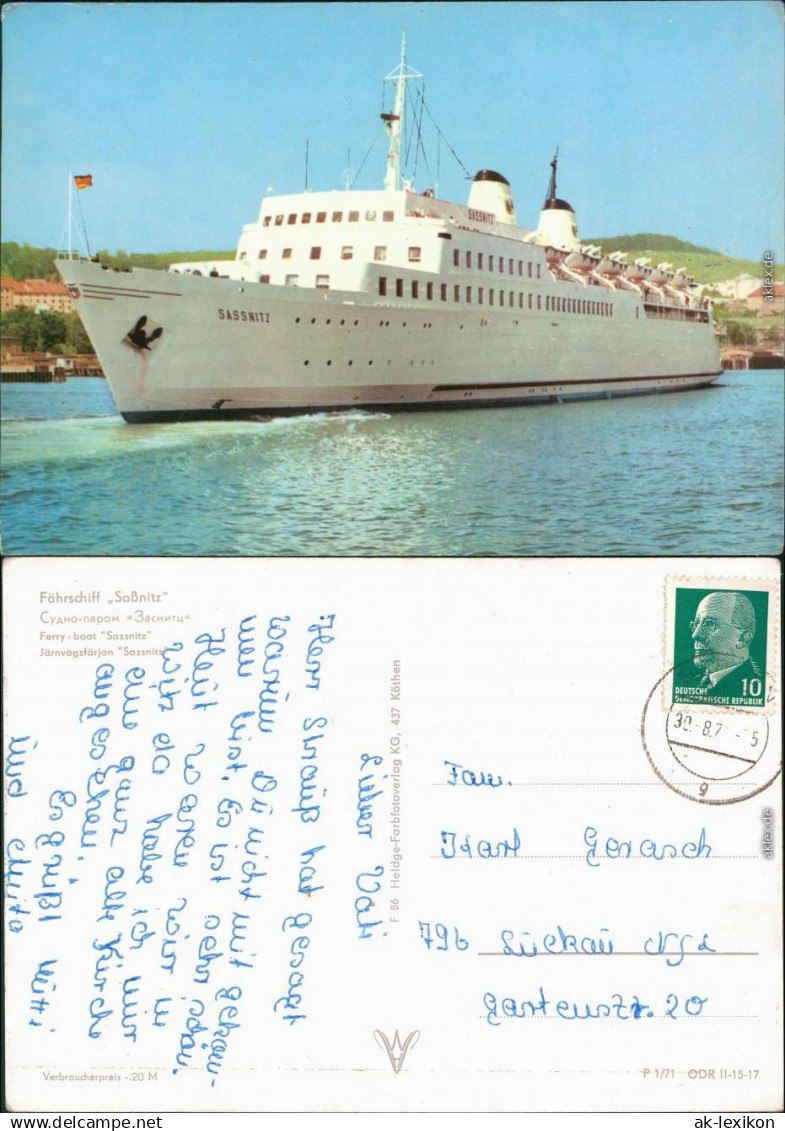 SASSNITZ
SASSNITZ
Fährschiff „Saßnitz"
Судно-паром »Засниtц«
Ferry-boat "Sassnitz"
Järnvägsfärjan "Sassnitz"
Lieber Vati
Herr Strauß hat gesagt
warum Du nicht mit gekom-
men bist. Es ist sehr schön.
Heut waren wir in
witz da habe ich mir
eine ganz alte Kirche
angeschaut.
Es grüßt Mutti
und Anita
F 86 Heldge-Farbfotoverlag KG, 437 Köthen
10
DEUTSCHE
DEMOKRATISCHE REPUBLIK
30.-8.7
g
Fam.
Karl Gerasch
796 Luckau N/L
Gartenstr. 20
Verbraucherpreis -.20 M
P 1/71 ODR II-15-17
aklex.de
aklex.de
aklex.de
www.ak-lexikon.de
ak-lexikon